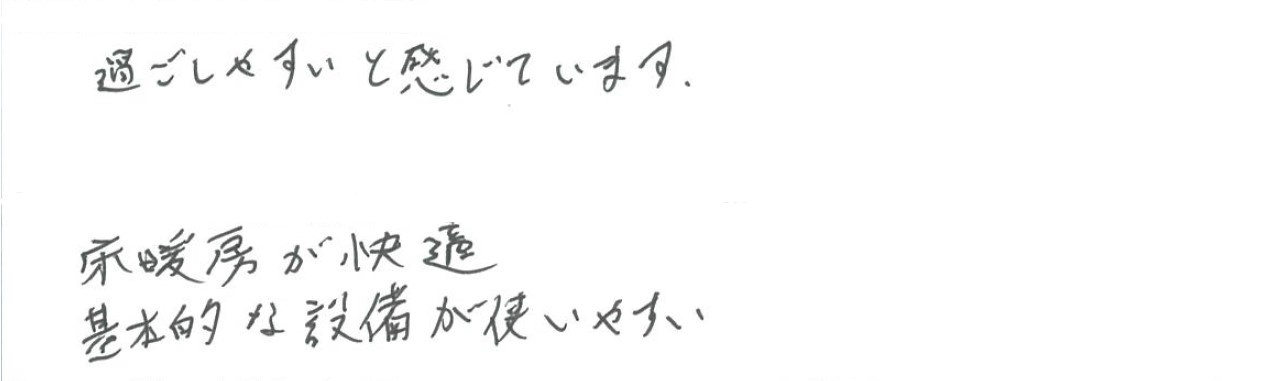 過ごしやすいと感じています.
床暖房が快適
基本的な設備が使いやすい